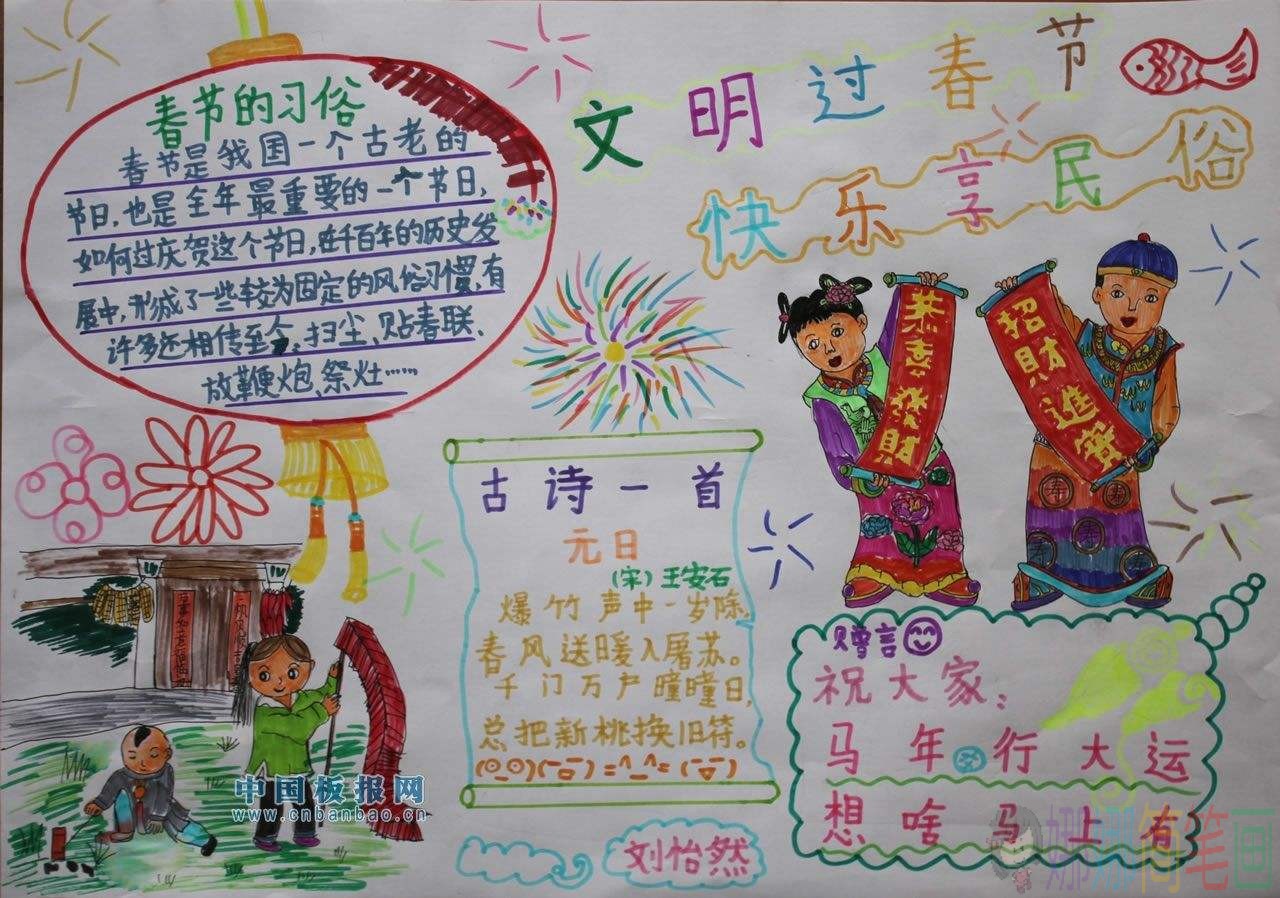 文明过春节
快乐享民俗
春节的习俗
春节是我国一个古老的
节日,也是全年最重要的一个节日,
如何过庆贺这个节日,在千百年的历史发
展中,形成了一些较为固定的风俗习惯,有
许多还相传至今。扫尘、贴春联、
放鞭炮、祭灶……
恭喜發財
招財進寶
古诗一首
元日
(宋)王安石
爆竹声中一岁除,
春风送暖入屠苏。
千门万户曈曈日,
总把新桃换旧符。
赠言
祝大家:
马年行大运
想啥马上有
刘怡然
中国板报网
www.cnbanbao.cn
娜娜简笔画